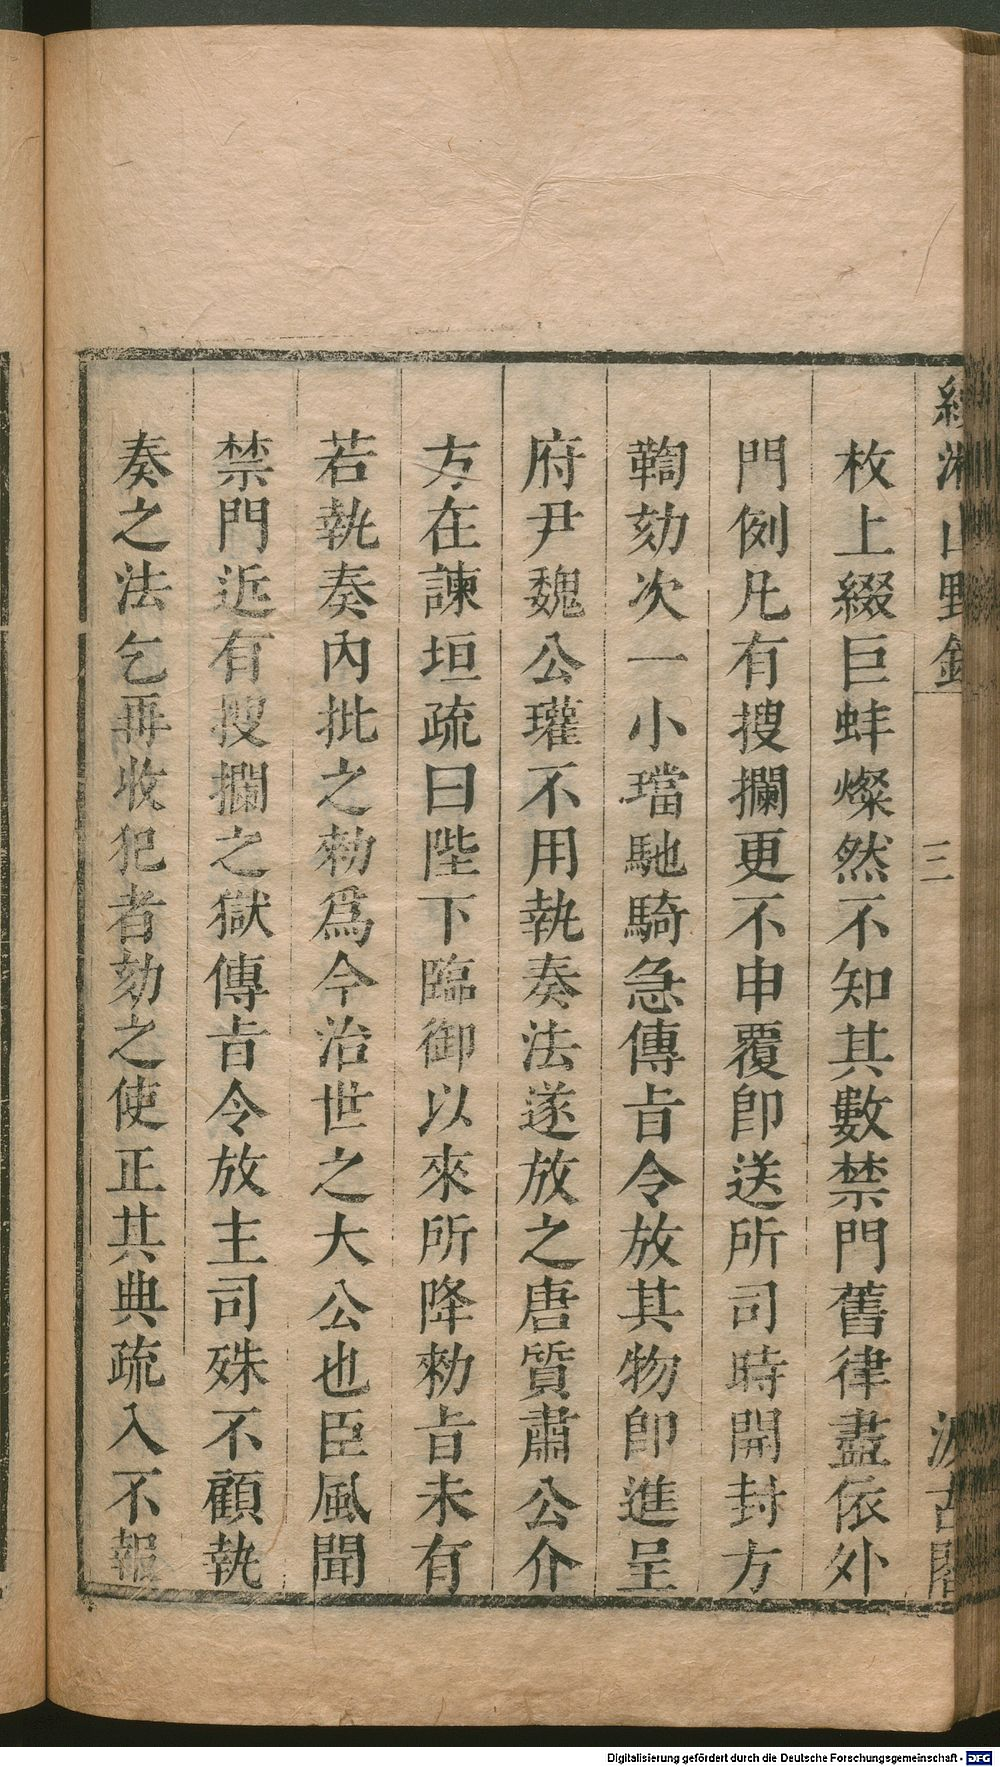 續湘山野錄 三 汲古閣
枚上綴巨蚌燦然不知其數禁門舊律盡依外
門例凡有搜攔更不申覆卽送所司時開封方
鞫劾次一小璫馳騎急傳㫖令放其物卽進呈
府尹魏公瓘不用執奏法遂放之唐質肅公介
方在諫垣疏曰陛下臨御以來所降勑㫖未有
若執奏內批之勑爲今治世之大公也臣風聞
禁門近有搜攔之獄傳㫖令放主司殊不顧執
奏之法乞再收犯者劾之使正其典疏入不報
Digitalisierung gefördert durch die Deutsche Forschungsgemeinschaft - DFG